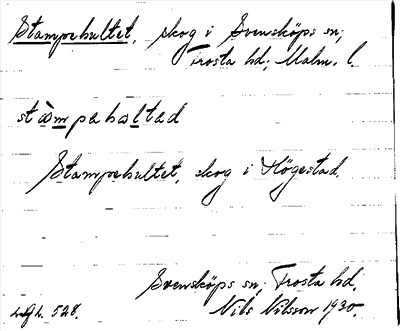 Stampehultet, skog i Svensköps sn;
Frosta hd; Malm. l.
stàmpahəltad
Stampehultet, skog i Högestad.
Svensköps sn, Frosta hd.
528. Nils Nilsson 1930.